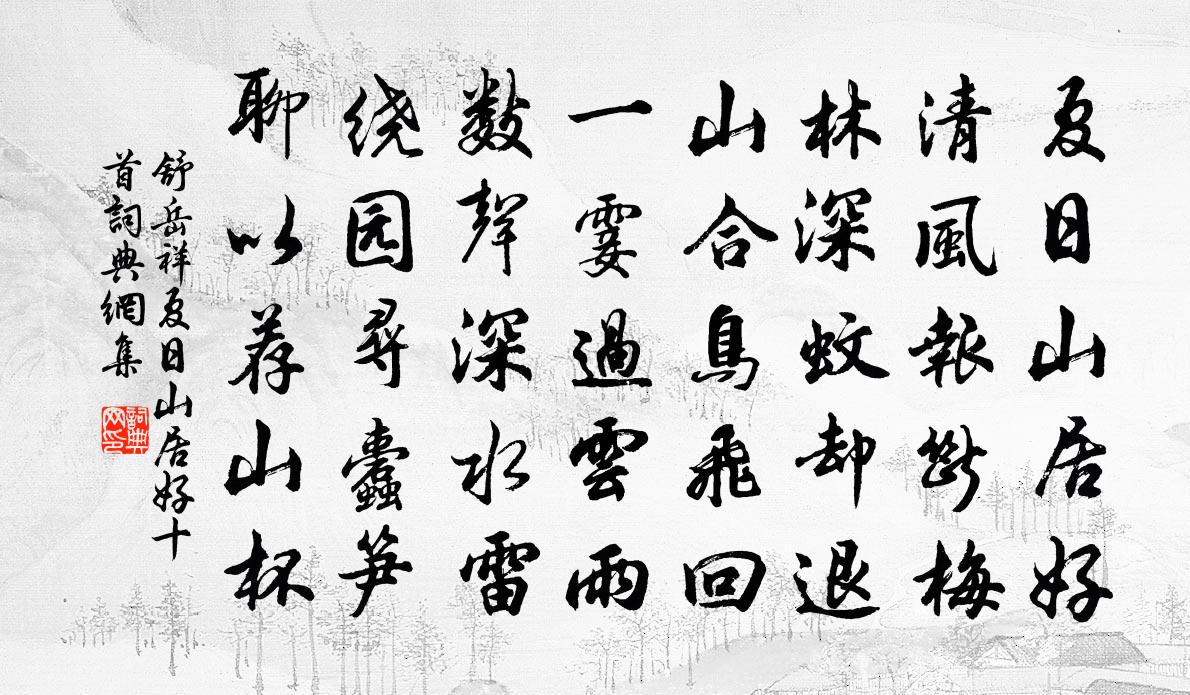 夏日山居好
清風報斷梅
林深蚊却退
山合鳥飛回
一霎過雲雨
數聲深水雷
绕园尋蠹笋
聊以荐山杯
舒岳祥夏日山居好十
首詞典網集
詞典
网印